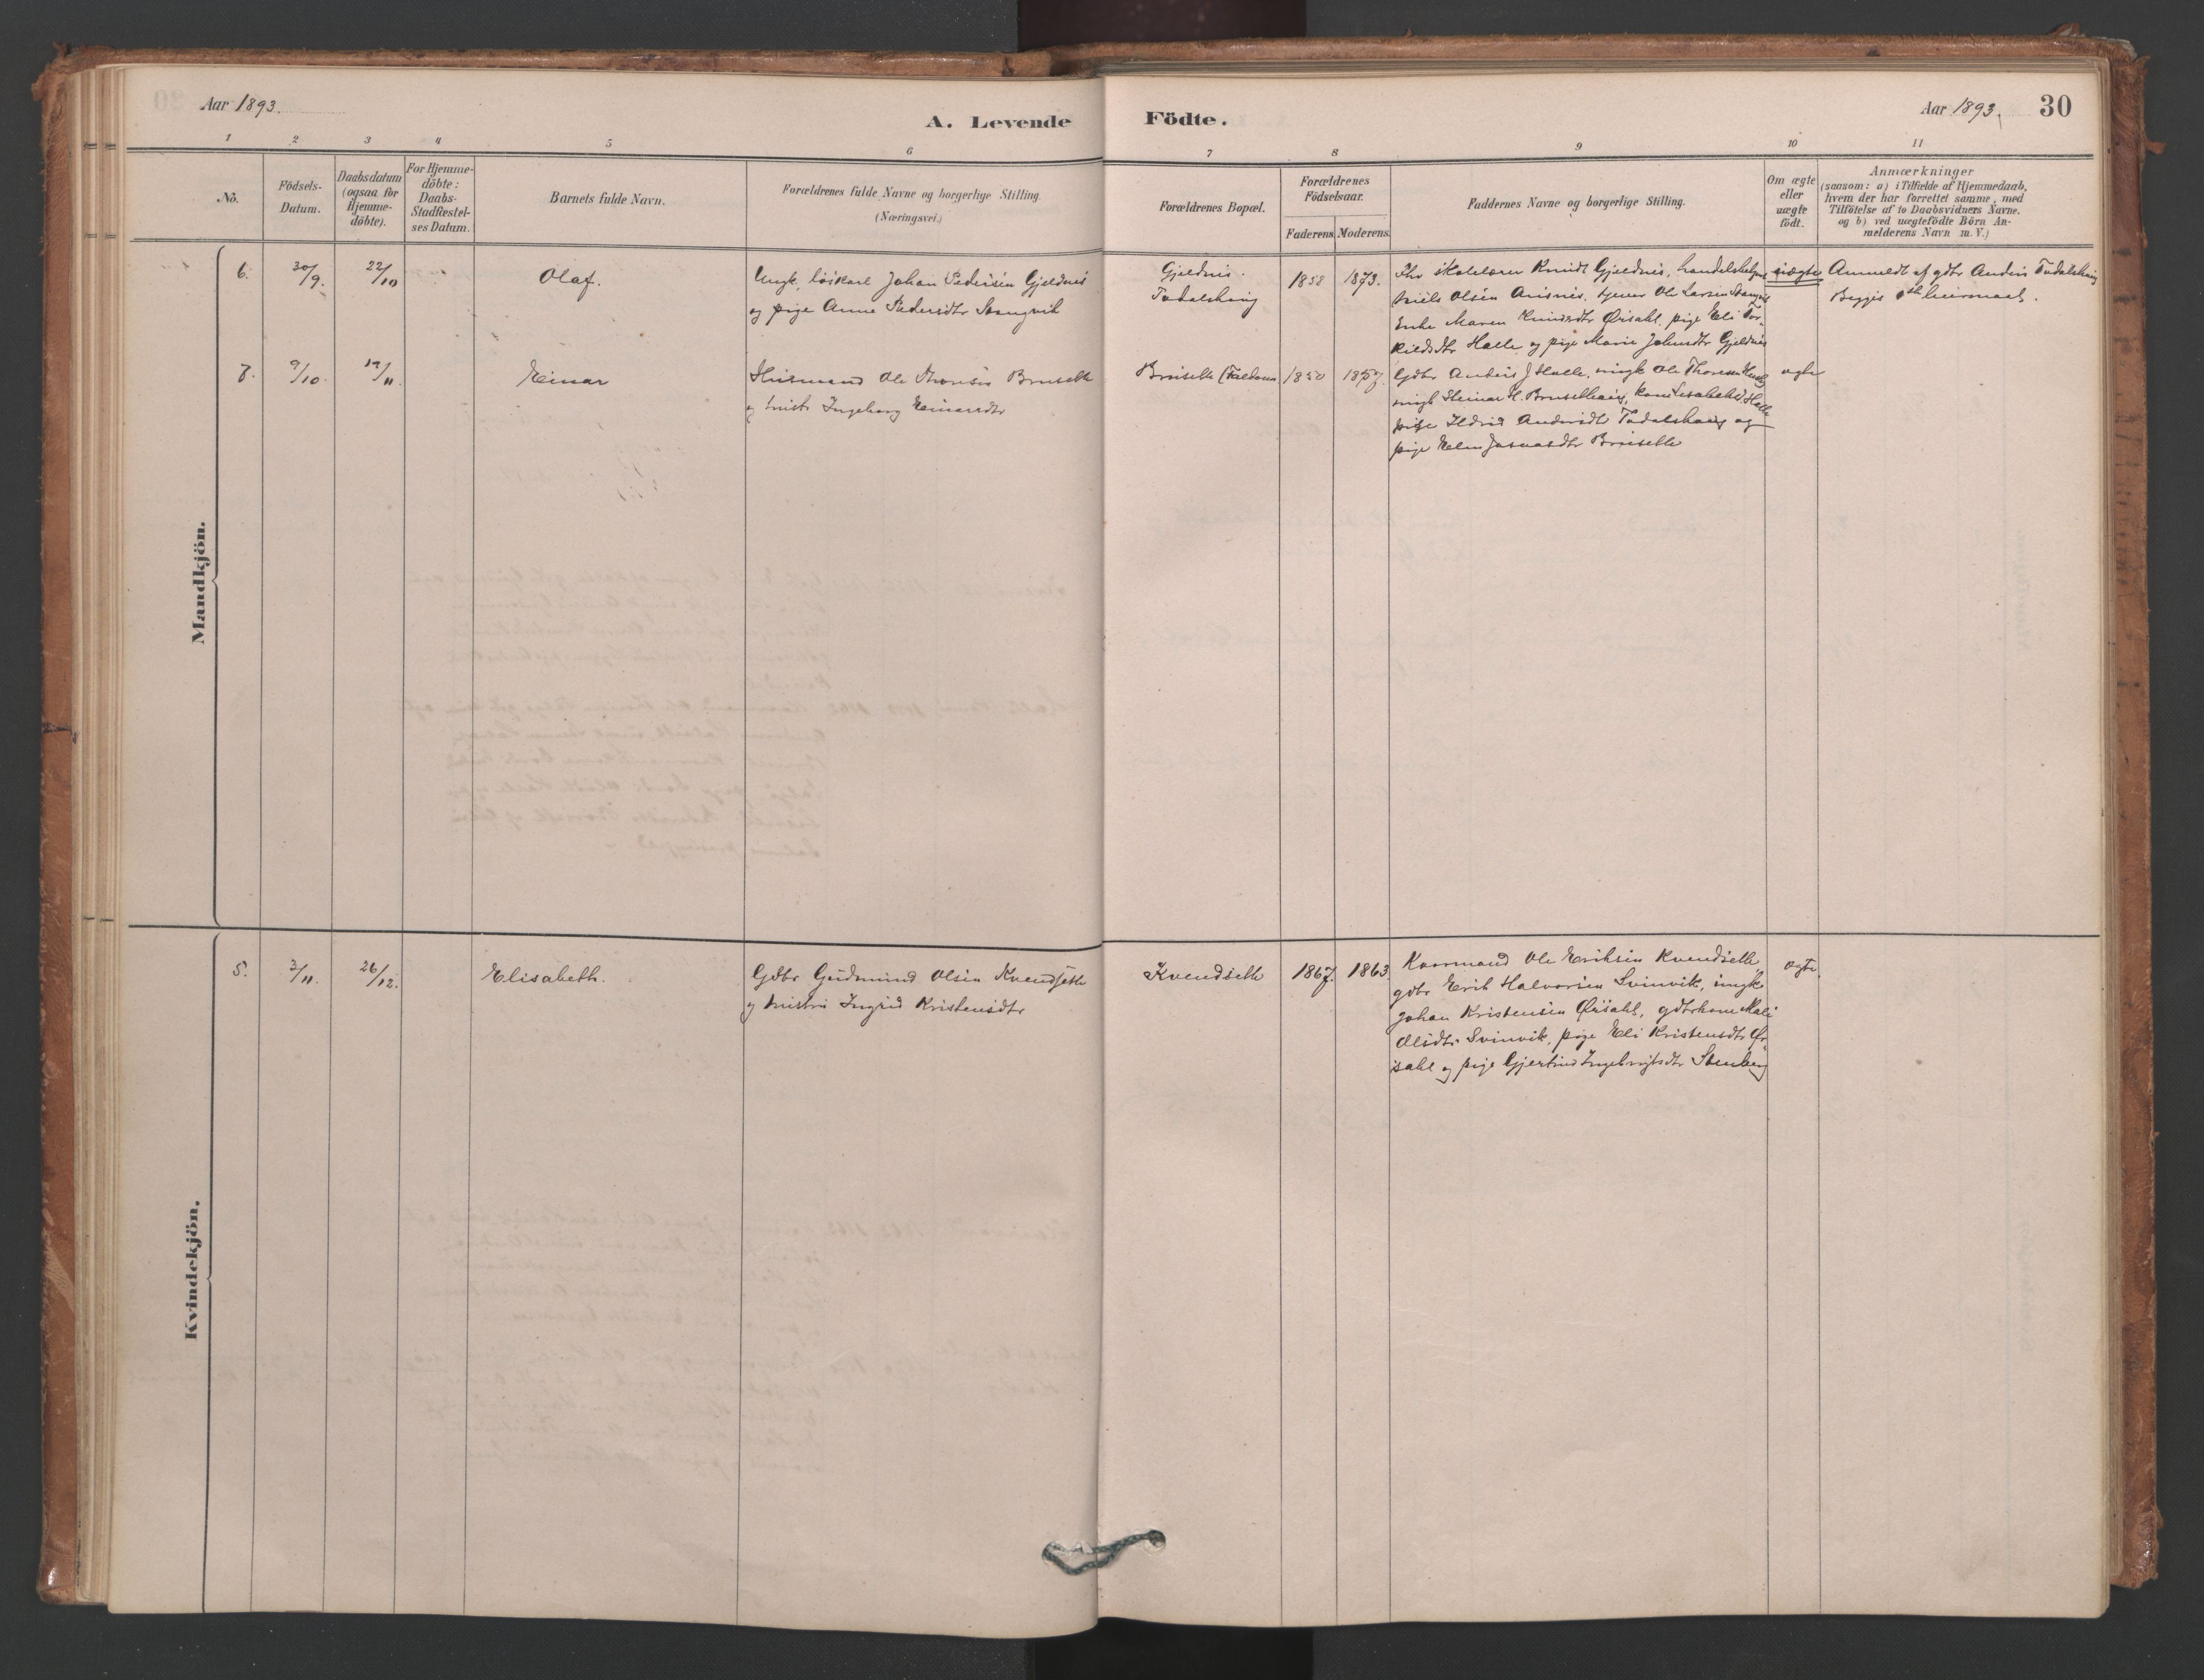 Aar 1893.
A. Levende Födte.
Aar 1893. 30
1 2 3 4 5 6 7 8 9 10 11
No.
Födsels-Datum.
Daabsdatum (ogsaa for Hjemme-döbte).
For Hjemme-döbte: Daabs-Stadfæstel-ses Datum.
Barnets fulde Navn.
Forældrenes fulde Navne og borgerlige Stilling.
(Næringsvei.)
Forældrenes Bopæl.
Forældrenes Födselsaar.
Faderens. Moderens.
Faddernes Navne og borgerlige Stilling.
Om ægte eller uægte födt.
Anmærkninger
(saasom: a) i Tilfælde af Hjemmedaab,
hvem der har forrettet samme, med
Tilföielse af to Daabsvidners Navne.
og b) ved uægtefödte Börn An-
melderens Navn m. V.)
Mandkjön.
6. 30/9. 22/10 Olaf.
Ungk. löskarl Johan Pedersen Gjeldnes
og pige Anne Pedersdtr Stangvik
Gjeldnes.
Todalshaug
1858 1873.
Fhv skolelærer Knudt Gjeldnes, handelsbetjent
Niels Olsen Arisnes, tjener Ole Larsen Stangvik
Enke Maren Knudsdtr Ørsahl, pige Eli Tor-
kildsdtr Halle og pige Marie Johnsdtr Gjeldnes
uægte
Anmeldt af gdbr Anders Todalshaug
Begges 1ste leiermaal.
7. 9/10. 12/11. Einar
Husmand Ole Thoresen Bruseth
og hustr Ingeborg Einarsdtr
Bruseth (Faldem
1850 1857.
Gdbr Anders J Halle, ungk Ole Thoresen
ungk Steinar H. Brusethaug, kone Lisabeth Halle
pige Ildrid Andersdtr Todalshaug og
pige Elen Jonasdtr Bruseth
ægte
Kvindekjön.
5. 3/11. 26/12. Elisabeth.
Gdbr Gudmund Olsen Kvendseth
og hustru Ingrid Kristensdtr
Kvendseth
1867. 1863
Kaarmand Ole Eriksen Kvendseth
gdbr Erik Halvorsen Svinvik, ungk
Johan Kristensen Ørsahl, gdbrkone Mali
Olsdtr Svinvik, pige Eli Kristensdtr Ør-
sahl og pige Gjertrud Ingebrigtsdtr Stenberg
ægte.